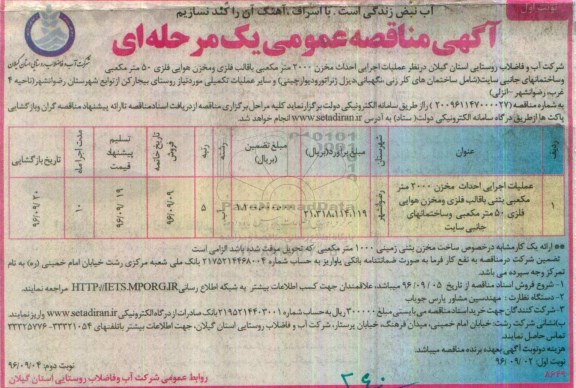 نوبت اول
آب نبض زندگی است، با اسراف، آهنگ آن را کُند نسازیم
آگهی مناقصه عمومی یک مرحله ای
شرکت آب و فاضلاب روستایی استان گیلان
شرکت آب و فاضلاب روستایی استان گیلان درنظر عملیات اجرایی احداث مخزن ۲۰۰۰ متر مکعبی باقالب فلزی ومخزن هوایی فلزی ۵۰ متر مکعبی
وساختمانهای جانبی سایت(شامل ساختمان های کلر زنی ،نگهبانی،دیزل ژنراتورودیوارچینی) و سایر عملیات تکمیلی موردنیاز روستای بیجارکن از توابع شهرستان رضوانشهر(ناحیه ۴
غرب رضوانشهر -انزلی)
به شماره مناقصه (۲۰۰۹۶۱۱۴۷۰۰۰۰۲۷) را از طریق سامانه الکترونیکی دولت برگزار نماید کلیه مراحل برگزاری مناقصه از دریافت اسنادمناقصه تاارائه پیشنهاد مناقصه گران وبازگشایی
پاکت ها ازطریق درگاه سامانه الکترونیکی دولت( ستاد) به آدرس www.setadiran.ir انجام خواهد شد
ردیف عنوان شهرستان مبلغ برآورد(ریال) مبلغ تضمین (ریال) رشته رتبه خاتمه فروش تسلیم پیشنهاد قیمت مدت اجرا ماه تاریخ بازگشایی
۱ عملیات اجرایی احداث مخزن ۲۰۰۰ متر مکعبی بتنی باقالب فلزی ومخزن هوایی فلزی ۵۰ متر مکعبی وساختمانهای جانبی سایت رضوانشهر ۲۱،۳۱۸،۱۱۴،۱۱۹ آب ۵ ۹۶/۰۹/۰۹ ۹۶/۰۹/۱۹ ۱۰ ۹۶/۰۹/۲۰
** ارائه یک کارمشابه درخصوص ساخت مخزن بتنی زمینی ۱۰۰۰ متر مکعبی که تحویل موقت شده باشد الزامی است
تضمین شرکت در مناقصه به نفع کار فرما به صورت ضمانتنامه بانکی یاواریز به حساب شماره ۲۱۷۵۲۱۴۴۶۸۰۰۴ بانک ملی شعبه مرکزی رشت خیابان امام خمینی (ره) به نام
تمرکز وجوه سپرده می باشد.
۱- شروع فروش اسناد مناقصه از تاریخ ۹۶/۰۹/۰۵ میباشد، علاقمندان جهت کسب اطلاعات بیشتر به شبکه اطلاع رسانی HTTP//IETS.MPORG.IR مراجعه نمایند.
۲- دستگاه نظارت : مهندسین مشاور پارس جویاب
۳- شرکت کنندگان جهت خرید اسناد مناقصه می بایستی مبلغ ۳۰۰۰۰۰ ریال به حساب شماره ۲۱۹۵۲۱۴۴۰۳۰۰۱ بانک صادرات از درگاه الکترونیکی www.setadiran.ir واریز نمایند.
ب)نشانی شرکت: رشت، خیابان امام خمینی، میدان فرهنگ، خیابان پرستار، شرکت آب و فاضلاب روستایی استان گیلان، جهت اطلاعات بیشتر باتلفنهای ۳۳۳۲۱۰۵۴- ۳۳۳۲۵۷۷۶
تماس حاصل نمایند.
هزینه دونوبت آگهی بعهده برنده مناقصه میباشد.
نوبت اول: ۹۶/۰۹/۰۲
نوبت دوم: ۹۶/۰۹/۰۴
روابط عمومی شرکت آب وفاضلاب روستایی استان گیلان